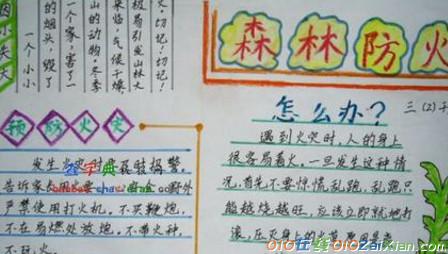 因小失大
一个小小
的烟头，毁了
一个家，害了一
山的动物。冬季
来临，气候干燥
极易引发山林大
火，切记！切记！
森林防火
预防火灾
告诉家长
严禁使用打火机。不买鞭炮，
不在易燃处放炮。不带火种，
不玩火。
怎么办？
三（2）
遇到火灾时，人的身上
很容易着火，一旦发生这种情
况，首先不要惊慌乱跑，乱跑只
能越烧越旺，应该立即就地打
滚，压灭身上的火苗
010在线010ZaiXian.com